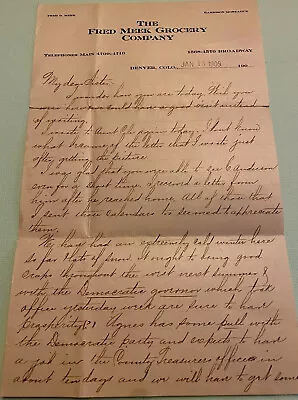 FRED D. MEEK
HARRISON
THE
FRED MEEK GROCERY
COMPANY
TELEPHONES MAIN 4709-4710
BROADWAY
DENVER, COLO., JAN 13 1909 190
My dear Sister,
I wonder how you are today. Wish you
were here we could have a good visit instead
of writing.
I wrote to Aunt Flo again today. I don't know
what became of the letter that I wrote just
after getting the picture
I was glad that you were able to see C Anderson
even for a short time, I received a letter from
him after he reached home. All of those that
I sent those calendars to seemed to appreciate
them.
We have had an extremely cold winter here
so far & lots of snow. It ought to bring good
crops throughout the west next summer &
with the Democratic governor which took
office yesterday we are sure to have
prosperity! Agnes has some pull with
the Democratic party and expects to have
a job in the County Treasurers office in
about ten days and we will have to get some